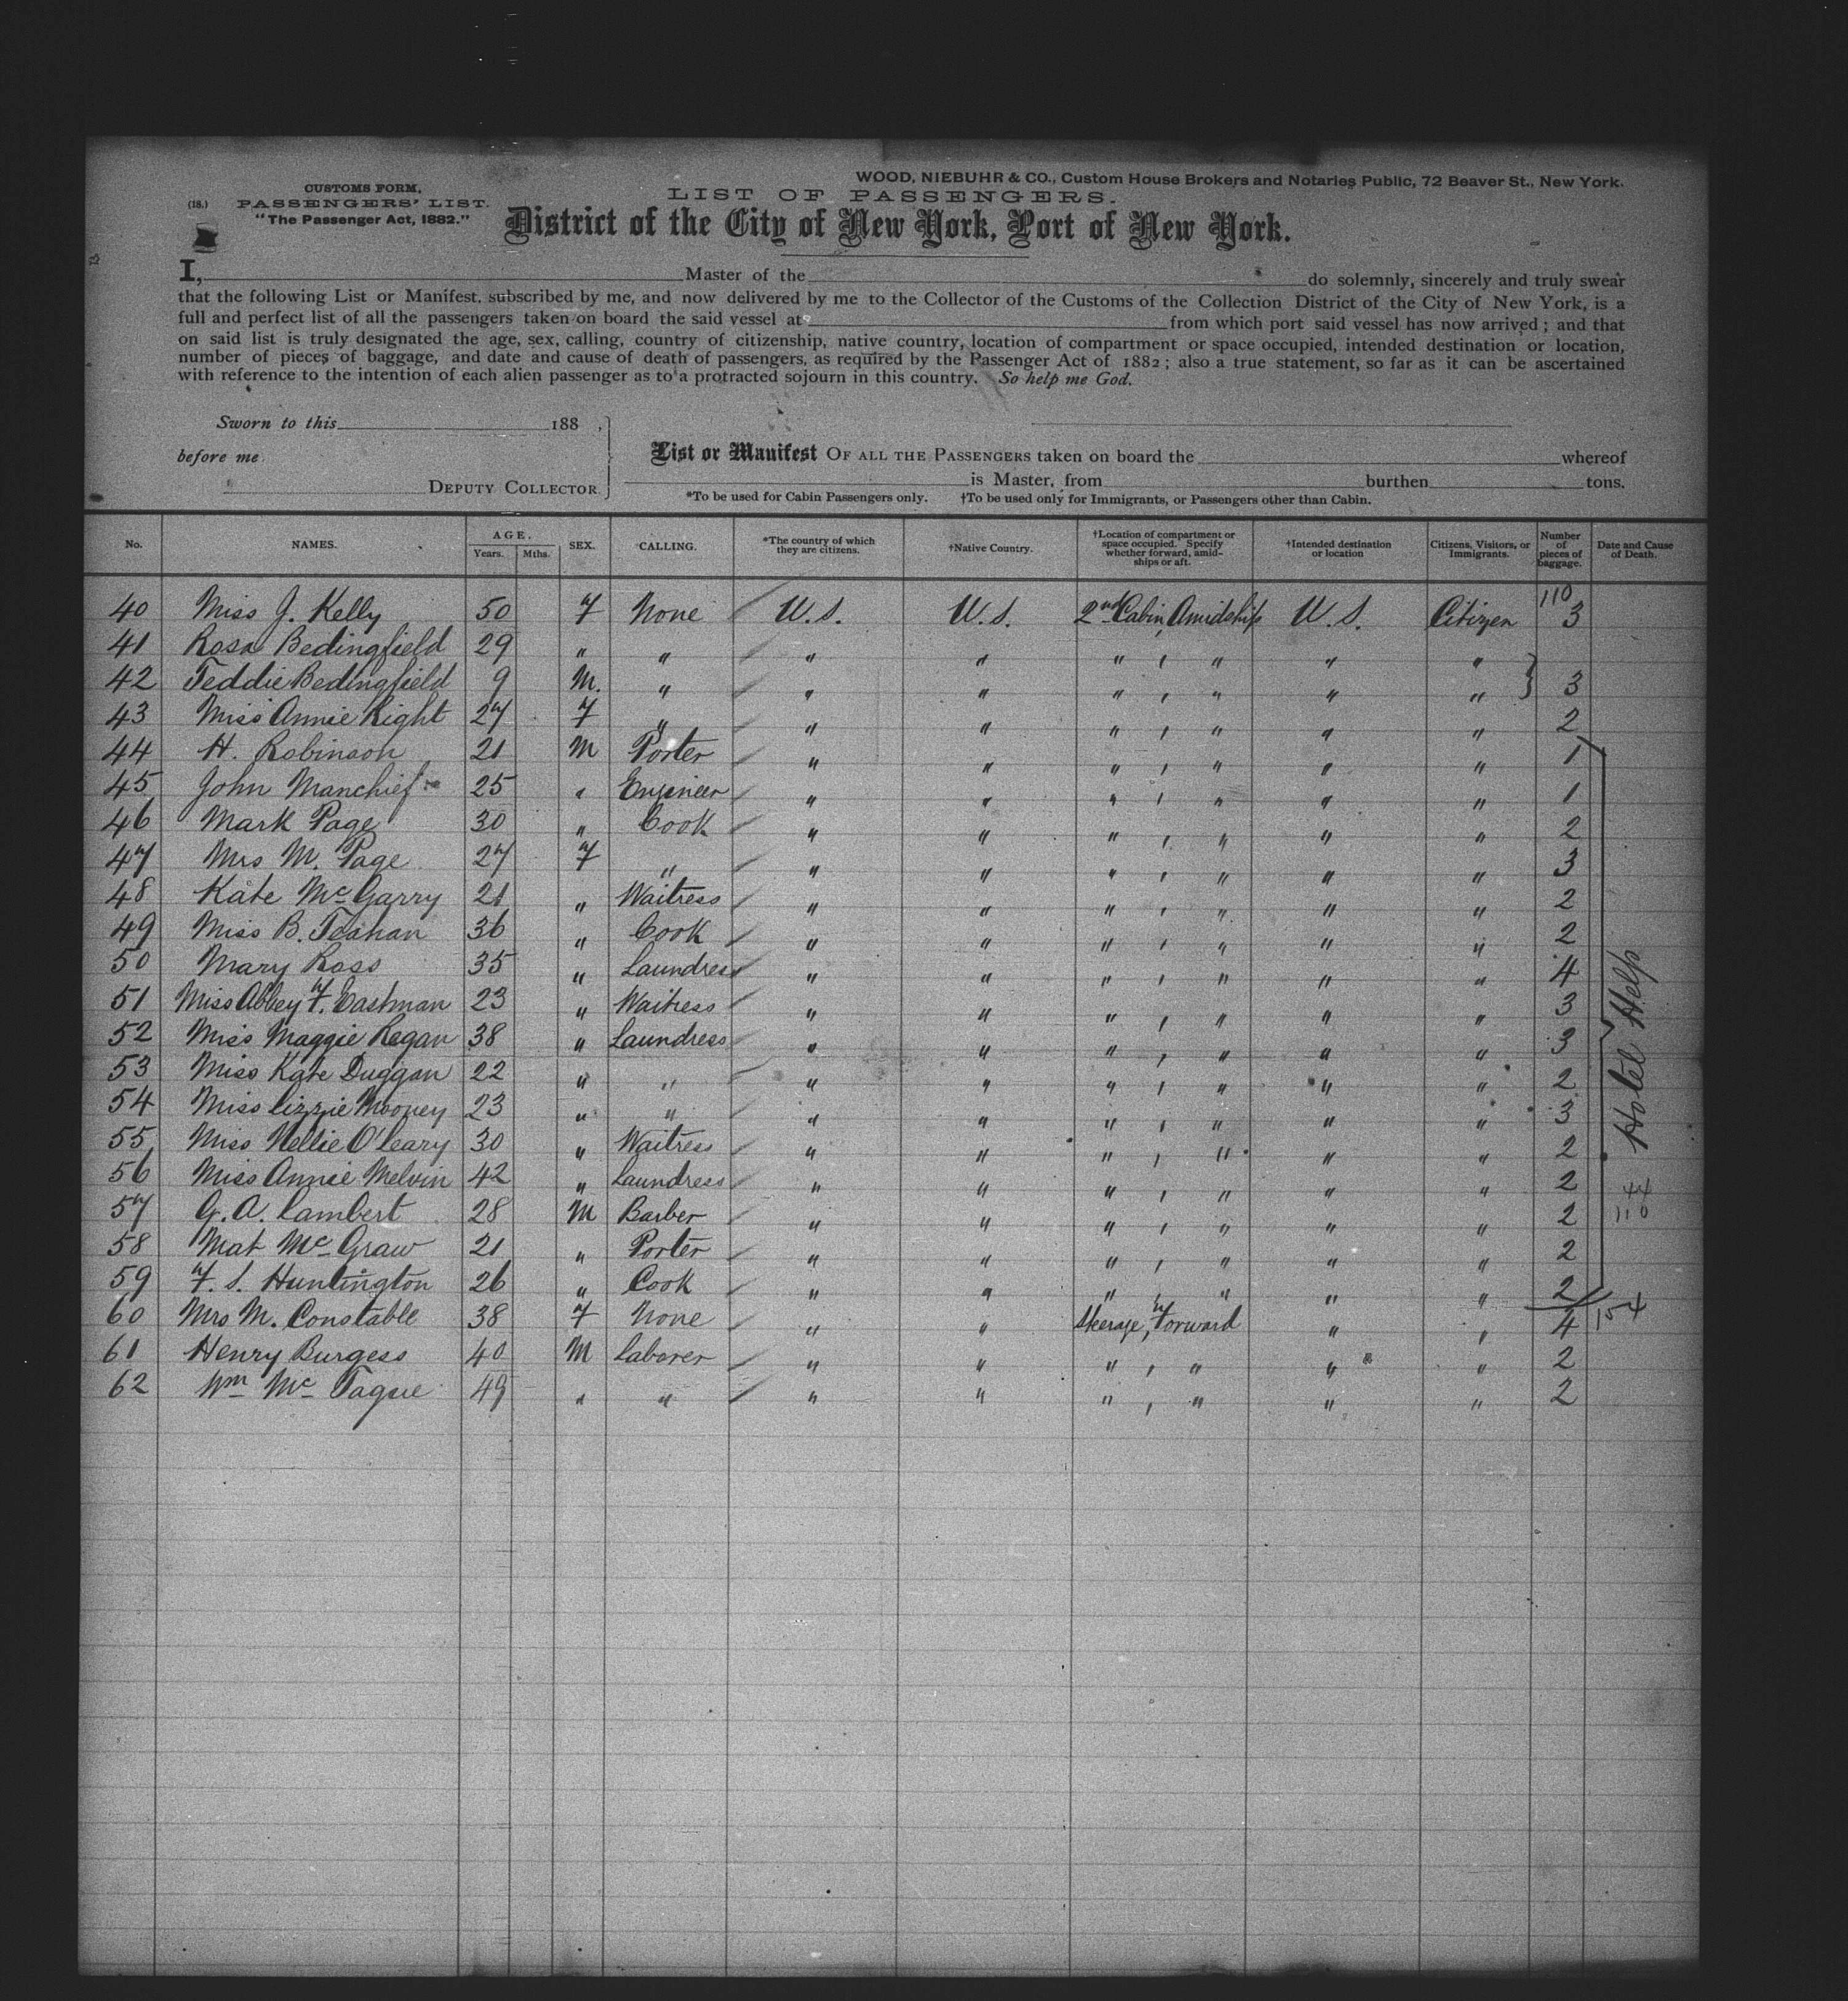 WOOD, NIEBUHR & CO., Custom House Brokers and Notaries Public, 72 Beaver St., New York.
(18.) CUSTOMS FORM,
PASSENGERS' LIST.
"The Passenger Act, 1882."
LIST OF PASSENGERS.
District of the City of New York, Port of New York.
I, Master of the do solemnly, sincerely and truly swear
that the following List or Manifest, subscribed by me, and now delivered by me to the Collector of the Customs of the Collection District of the City of New York, is a
full and perfect list of all the passengers taken on board the said vessel at from which port said vessel has now arrived; and that
on said list is truly designated the age, sex, calling, country of citizenship, native country, location of compartment or space occupied, intended destination or location,
number of pieces of baggage, and date and cause of death of passengers, as required by the Passenger Act of 1882; also a true statement, so far as it can be ascertained
with reference to the intention of each alien passenger as to a protracted sojourn in this country. So help me God.
Sworn to this 188 ,
before me
DEPUTY COLLECTOR
List or Manifest OF ALL THE PASSENGERS taken on board the whereof
is Master, from burthen tons.
*To be used for Cabin Passengers only. †To be used only for Immigrants, or Passengers other than Cabin.
No. NAMES. AGE. Years. Mths. SEX. CALLING. *The country of which they are citizens. †Native Country. †Location of compartment or space occupied. Specify whether forward, amidships or aft. †Intended destination or location Citizens, Visitors, or Immigrants. Number of pieces of baggage. Date and Cause of Death.
110
40 Miss J. Kelly 50 F None U.S. U.S. 2nd Cabin, Amidship U.S. Citizen 3
41 Rosa Bedingfield 29 " " " " " , " " "
42 Teddie Bedingfield 9 M. " " " " , " " " 3
43 Miss Annie Right 27 F " " " " , " " " 2
44 H. Robinson 21 M Porter " " " , " " " 1
45 John Manchief 25 " Engineer " " " , " " " 1
46 Mark Page 30 " Cook " " " , " " " 2
47 Mrs M. Page 27 F " " " " , " " " 3
48 Kate McGarry 21 " Waitress " " " , " " " 2
49 Miss B. Teahan 36 " Cook " " " , " " " 2
50 Mary Ross 35 " Laundress " " " , " " " 4
51 Miss Abbey F. Eastman 23 " Waitress " " " , " " " 3
52 Miss Maggie Regan 38 " Laundress " " " , " " " 3
53 Miss Kate Duggan 22 " " " " " , " " " 2
54 Miss Lizzie Mooney 23 " " " " " , " " " 3
55 Miss Nellie O'Leary 30 " Waitress " " " , " " " 2
56 Miss Annie Melvin 42 " Laundress " " " , " " " 2
57 G. A. Lambert 28 M Barber " " " , " " " 2
58 Mat McGraw 21 " Porter " " " , " " " 2
59 F. S. Huntington 26 " Cook " " " , " " " 2
60 Mrs M. Constable 38 F None " " Steerage, Forward " " 4
61 Henry Burgess 40 M Laborer " " " , " " " 2
62 Wm McTague 49 " " " " " , " " " 2
Hotel Help
44
110
154